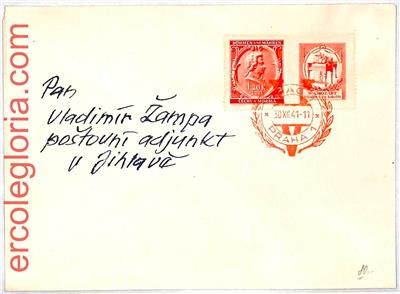 ercolegloria.com
Pan
Vladimír Žampa
poštovní adjunkt
v Jihlavě
BÖHMEN UND MÄHREN
1.20
ČECHY A MORAVA
W.A.MOZART
30.XII.41-11
PRAHA 1
80.-